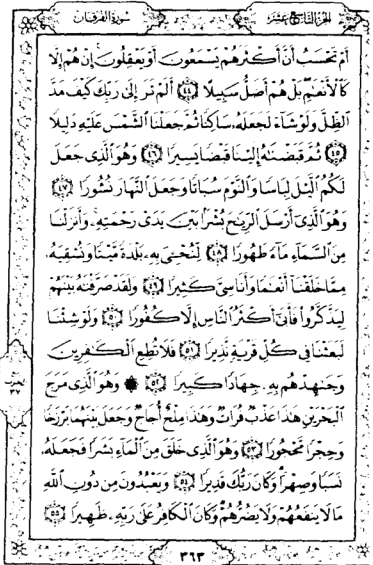 سُورَةُ الفُرْقَانِ
الجُزْءُ التَّاسِعَ عَشَرَ
أَمْ تَحْسَبُ أَنَّ أَكْثَرَهُمْ يَسْمَعُونَ أَوْ يَعْقِلُونَ إِنْ هُمْ إِلَّا
كَٱلْأَنْعَٰمِ بَلْ هُمْ أَضَلُّ سَبِيلًا ٤٤ أَلَمْ تَرَ إِلَىٰ رَبِّكَ كَيْفَ مَدَّ
ٱلظِّلَّ وَلَوْ شَآءَ لَجَعَلَهُۥ سَاكِنًا ثُمَّ جَعَلْنَا ٱلشَّمْسَ عَلَيْهِ دَلِيلًا
٤٥ ثُمَّ قَبَضْنَٰهُ إِلَيْنَا قَبْضًا يَسِيرًا ٤٦ وَهُوَ ٱلَّذِى جَعَلَ
لَكُمُ ٱلَّيْلَ لِبَاسًا وَٱلنَّوْمَ سُبَاتًا وَجَعَلَ ٱلنَّهَارَ نُشُورًا ٤٧
وَهُوَ ٱلَّذِىٓ أَرْسَلَ ٱلرِّيَٰحَ بُشْرًۢا بَيْنَ يَدَىْ رَحْمَتِهِۦ وَأَنزَلْنَا
مِنَ ٱلسَّمَآءِ مَآءً طَهُورًا ٤٨ لِّنُحْـِۧىَ بِهِۦ بَلْدَةً مَّيْتًا وَنُسْقِيَهُۥ
مِمَّا خَلَقْنَآ أَنْعَٰمًا وَأَنَاسِىَّ كَثِيرًا ٤٩ وَلَقَدْ صَرَّفْنَٰهُ بَيْنَهُمْ
لِيَذَّكَّرُوا۟ فَأَبَىٰٓ أَكْثَرُ ٱلنَّاسِ إِلَّا كُفُورًا ٥٠ وَلَوْ شِئْنَا
لَبَعَثْنَا فِى كُلِّ قَرْيَةٍ نَّذِيرًا ٥١ فَلَا تُطِعِ ٱلْكَٰفِرِينَ
وَجَٰهِدْهُم بِهِۦ جِهَادًا كَبِيرًا ٥٢ وَهُوَ ٱلَّذِى مَرَجَ
ٱلْبَحْرَيْنِ هَٰذَا عَذْبٌ فُرَاتٌ وَهَٰذَا مِلْحٌ أُجَاجٌ وَجَعَلَ بَيْنَهُمَا بَرْزَخًا
وَحِجْرًا مَّحْجُورًا ٥٣ وَهُوَ ٱلَّذِى خَلَقَ مِنَ ٱلْمَآءِ بَشَرًا فَجَعَلَهُۥ
نَسَبًا وَصِهْرًا وَكَانَ رَبُّكَ قَدِيرًا ٥٤ وَيَعْبُدُونَ مِن دُونِ ٱللَّهِ
مَا لَا يَنفَعُهُمْ وَلَا يَضُرُّهُمْ وَكَانَ ٱلْكَافِرُ عَلَىٰ رَبِّهِۦ ظَهِيرًا ٥٥
٣٦٣